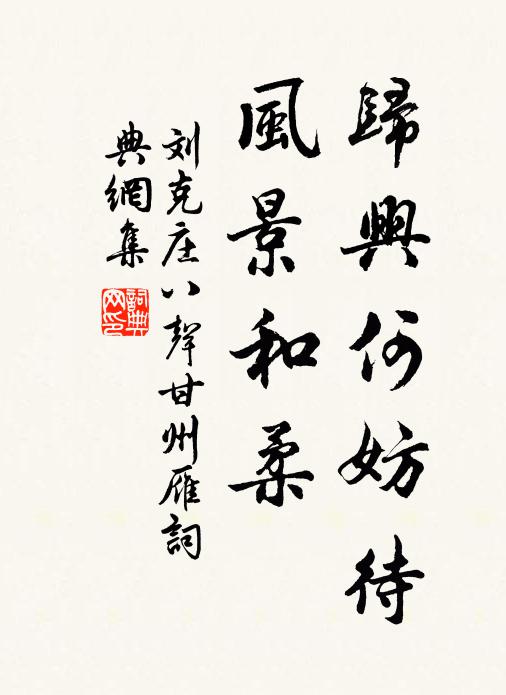 歸興何妨待
風景和柔
刘克庄八聲甘州雁詞
典網集
詞典網印